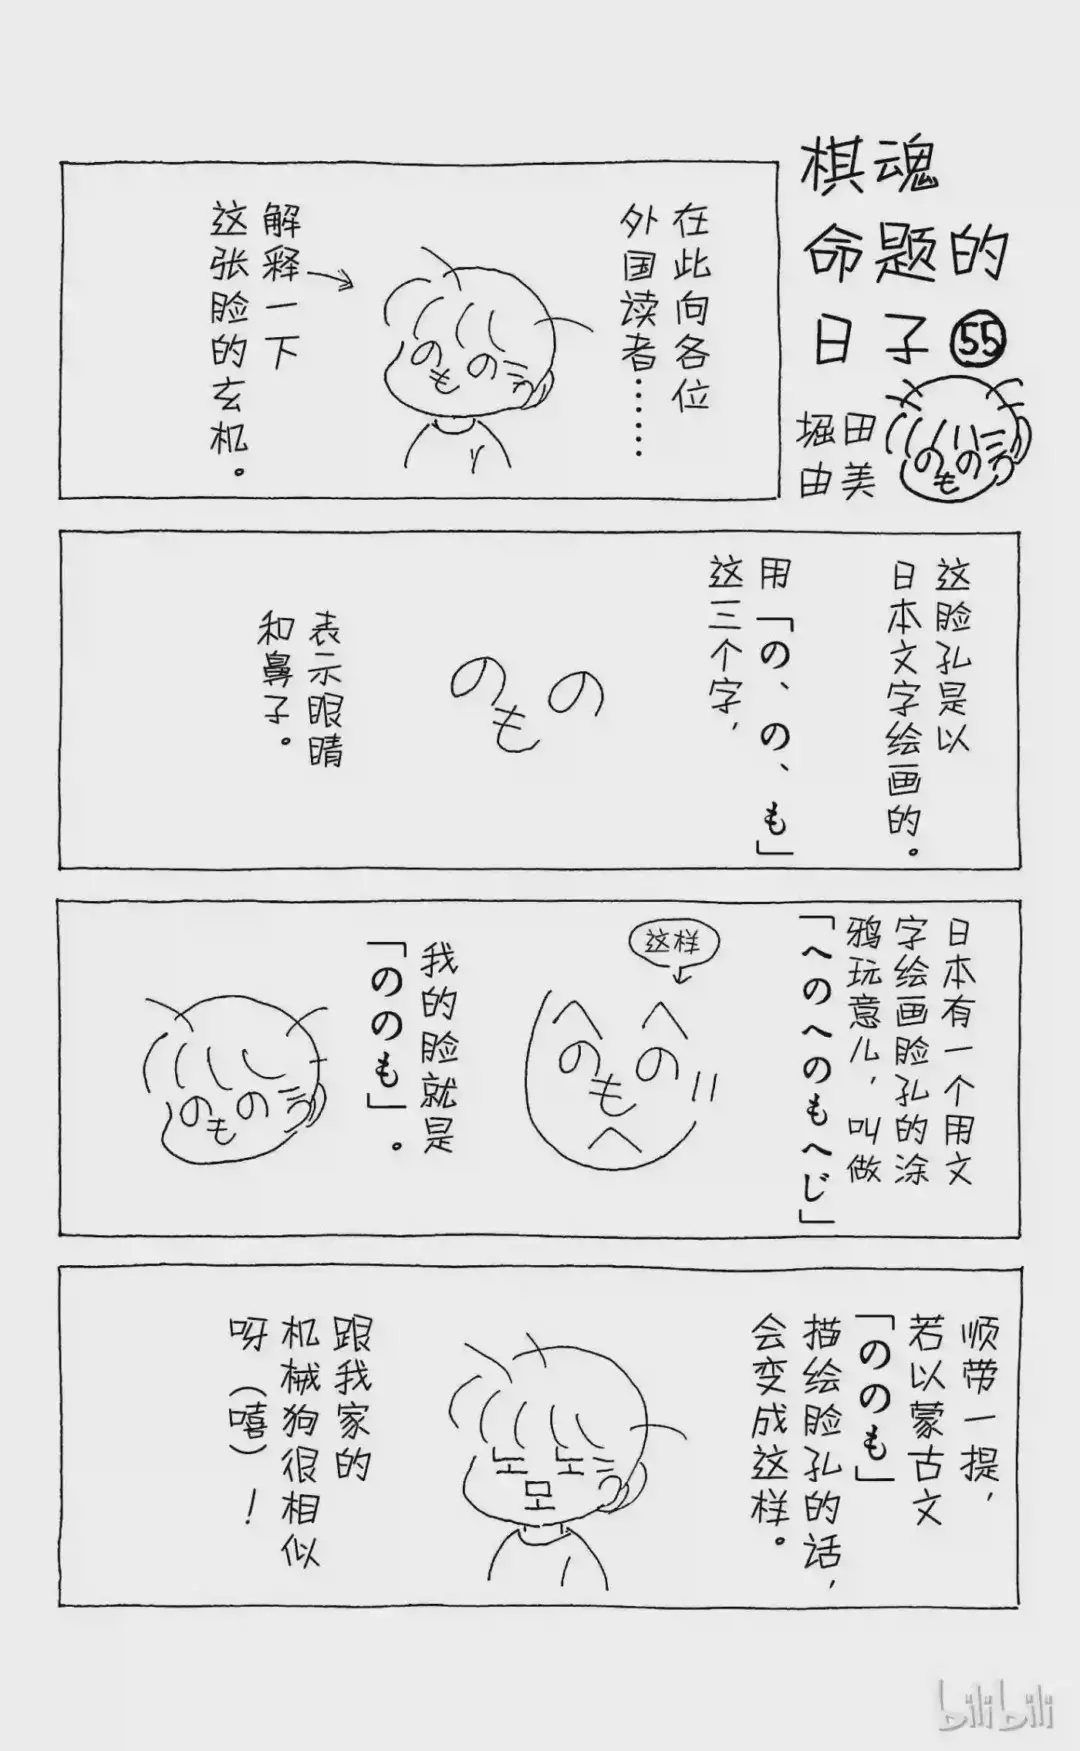 棋魂
命题的
日子55
堀田
由美
在此向各位
外国读者……
解释一下
这张脸的玄机。
ののも
这脸孔是以
日本文字绘画的。
用「の、の、も」
这三个字，
のの
も
表示眼睛
和鼻子。
日本有一个用文
字绘画脸孔的涂
鸦玩意儿，叫做
「へのへのもへじ」
这样
へへ
のの
も
へ
我的脸就是
「ののも」。
ののも
顺带一提，
若以蒙古文
「ののも」
描绘脸孔的话，
会变成这样。
노노
모
跟我家的
机械狗很相似
呀（嘻）！
bilibili